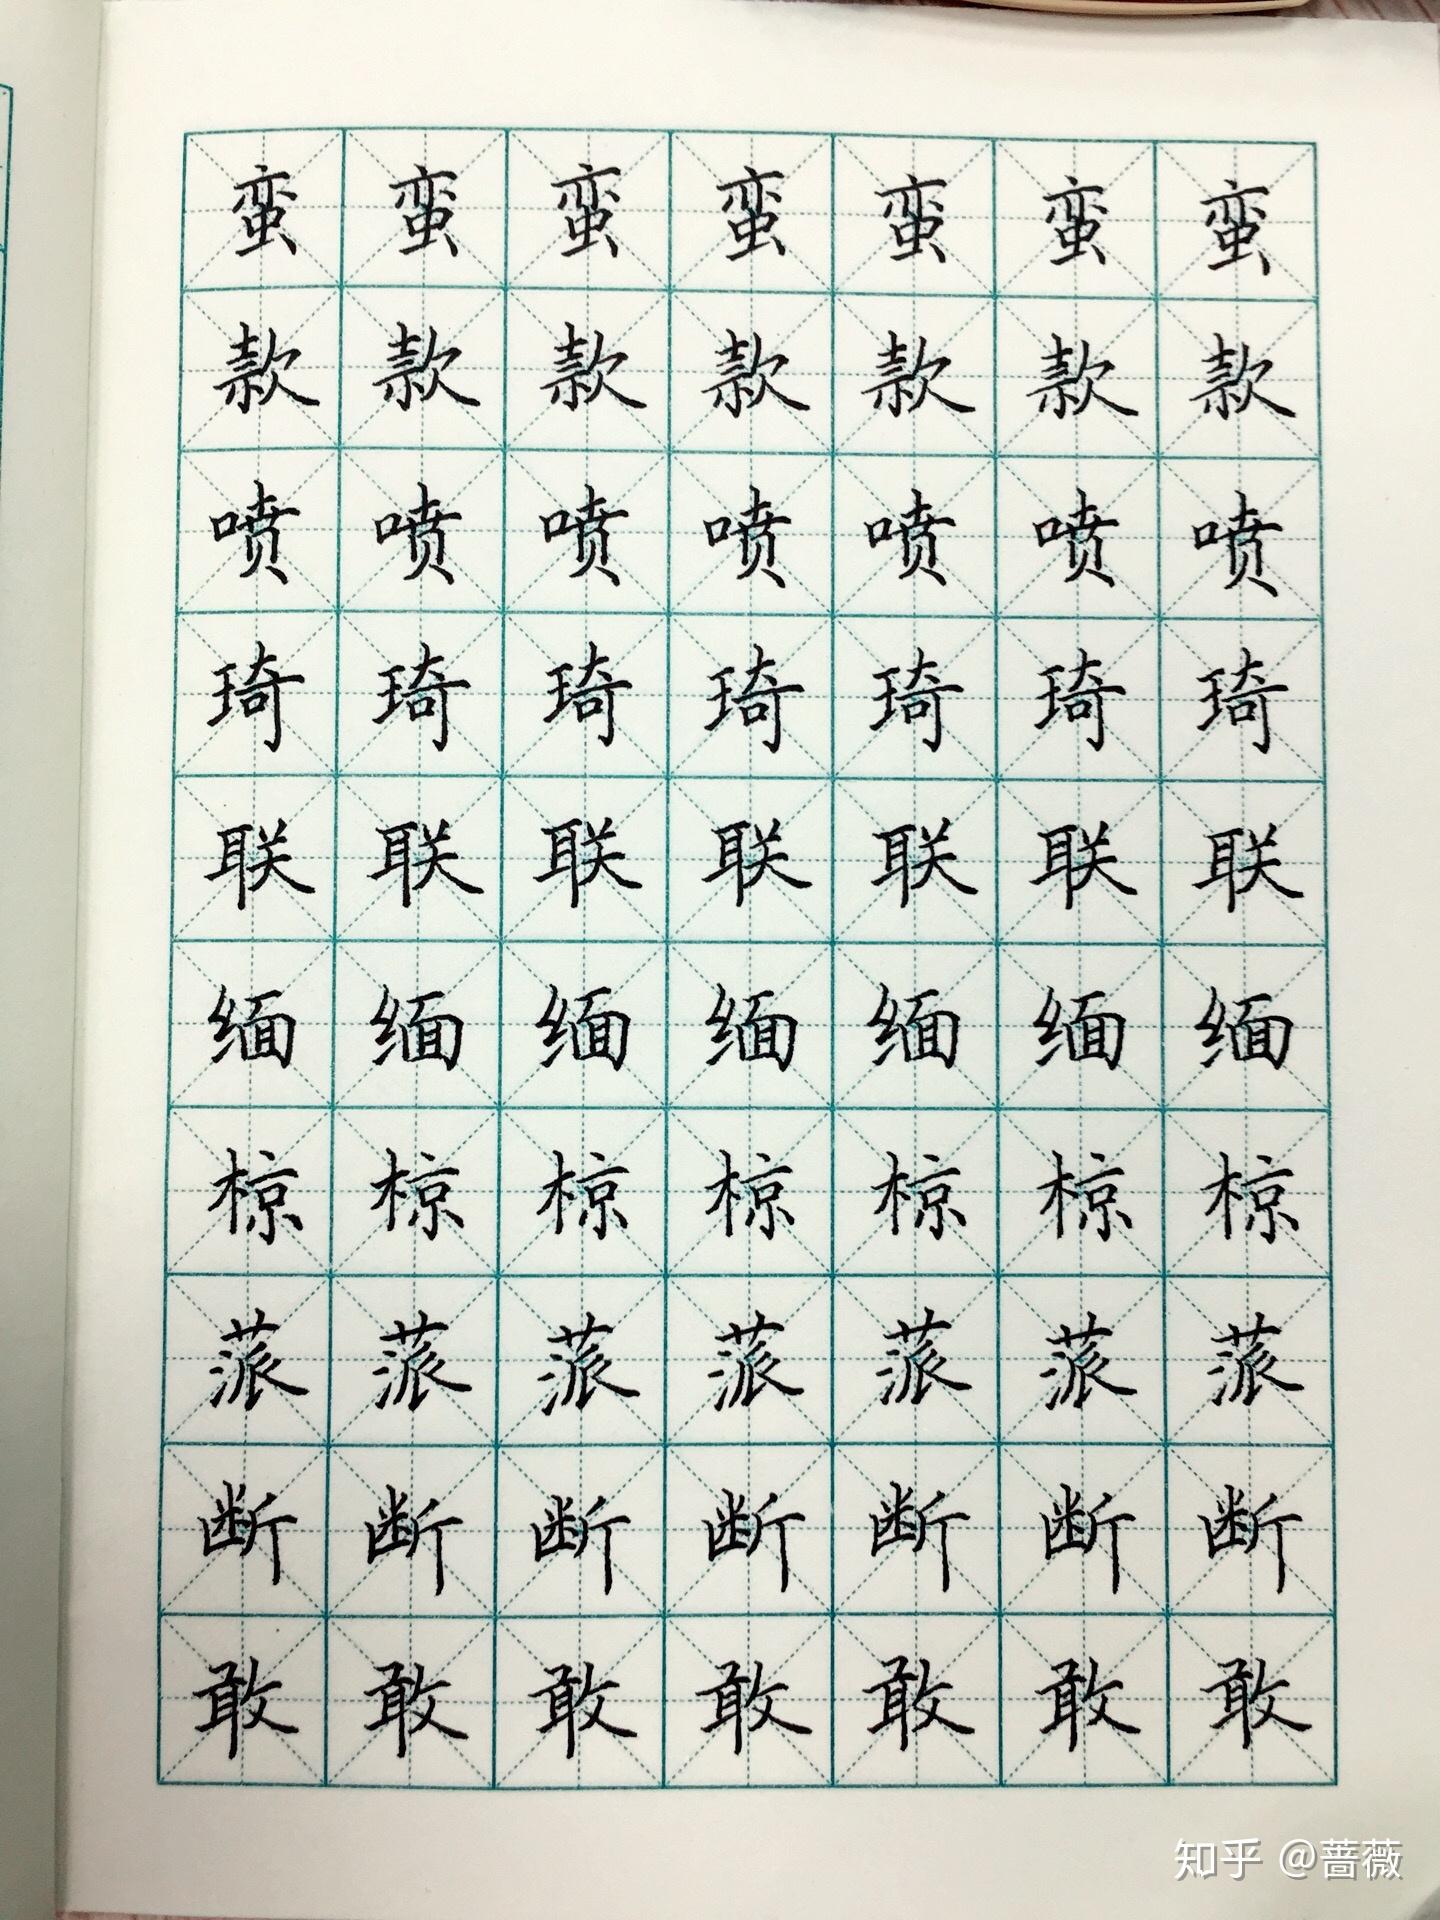 蛮蛮蛮蛮蛮蛮蛮
款款款款款款款
喷喷喷喷喷喷喷
琦琦琦琦琦琦琦
联联联联联联联
缅缅缅缅缅缅缅
椋椋椋椋椋椋椋
蒎蒎蒎蒎蒎蒎蒎
断断断断断断断
敢敢敢敢敢敢敢
知乎 @蔷薇